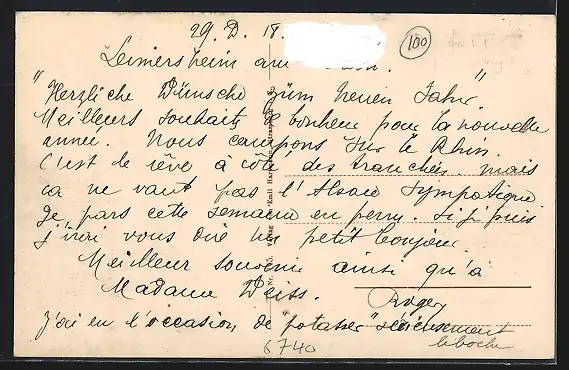 29. D. 18.
100
Leimersheim am Rhein.
"Herzliche Wünsche züm neuen Jahr."
Meilleurs souhaits de bonheur pour la nouvelle
année. Nous campons sur le Rhin.
C'est le rêve à côté des tranchées. mais
ça ne vaut pas l'Alsace sympatique
Je pars cette semaine en perm. Si je puis
j'irai vous dire un petit bonjour.
Meilleur souvenir ainsi qu'à
Madame Weiss.
Roger
J'ai eu l'occasion de "potasser" sérieusement
le boche
6740